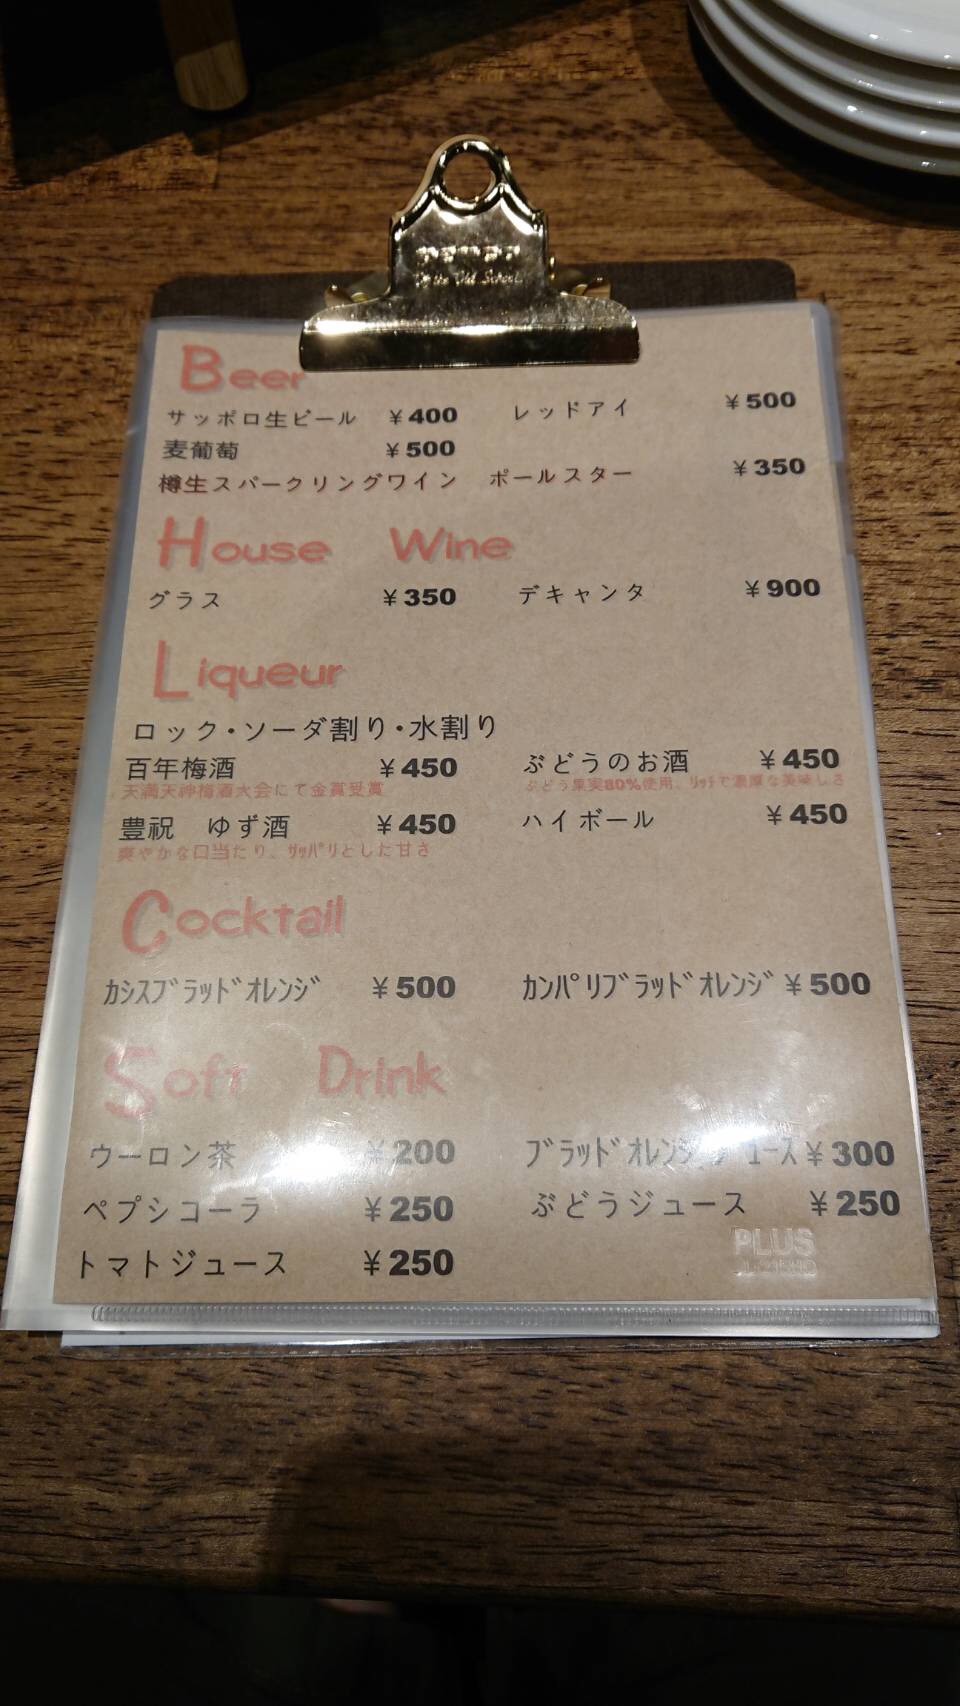 Beer
サッポロ生ビール ￥400 レッドアイ ￥500
麦葡萄 ￥500
樽生スパークリングワイン ポールスター ￥350
House Wine
グラス ￥350 デキャンタ ￥900
Liqueur
ロック・ソーダ割り・水割り
百年梅酒 ￥450 ぶどうのお酒 ￥450
天満天神梅酒大会にて金賞受賞 ぶどう果実80%使用、ﾘｯﾁで濃厚な美味しさ
豊祝 ゆず酒 ￥450 ハイボール ￥450
爽やかな口当たり、ｻｯﾊﾟﾘとした甘さ
Cocktail
ｶｼｽﾌﾞﾗｯﾄﾞｵﾚﾝｼﾞ ￥500 ｶﾝﾊﾟﾘﾌﾞﾗｯﾄﾞｵﾚﾝｼﾞ ￥500
Soft Drink
ウーロン茶 ￥200 ﾌﾞﾗｯﾄﾞｵﾚﾝｼﾞｼﾞｭｰｽ ￥300
ペプシコーラ ￥250 ぶどうジュース ￥250
トマトジュース ￥250
PLUS